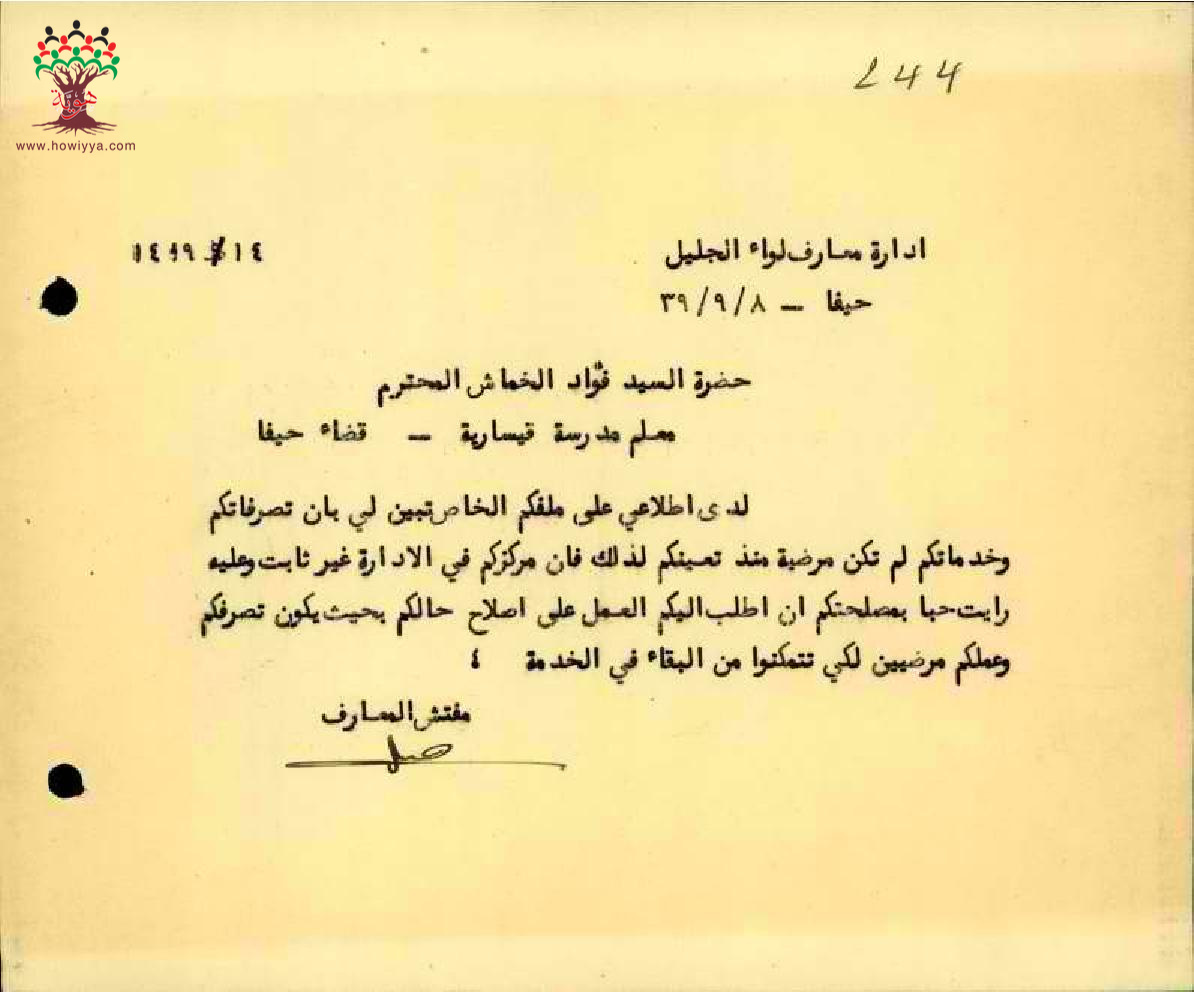 هوية
www.howiyya.com
244
ادارة معارف لواء الجليل
حيفا — ٣٩/٩/٨
حضرة السيد فؤاد الخماش المحترم
معلم مدرسة قيسارية — قضاء حيفا
لدى اطلاعي على ملفكم الخاص تبين لي بان تصرفاتكم
وخدماتكم لم تكن مرضية منذ تعيينكم لذلك فان مركزكم في الادارة غير ثابت وعليه
رايت حبا بمصلحتكم ان اطلب اليكم العمل على اصلاح حالكم بحيث يكون تصرفكم
وعملكم مرضيين لكي تتمكنوا من البقاء في الخدمة ٤
مفتش المعارف